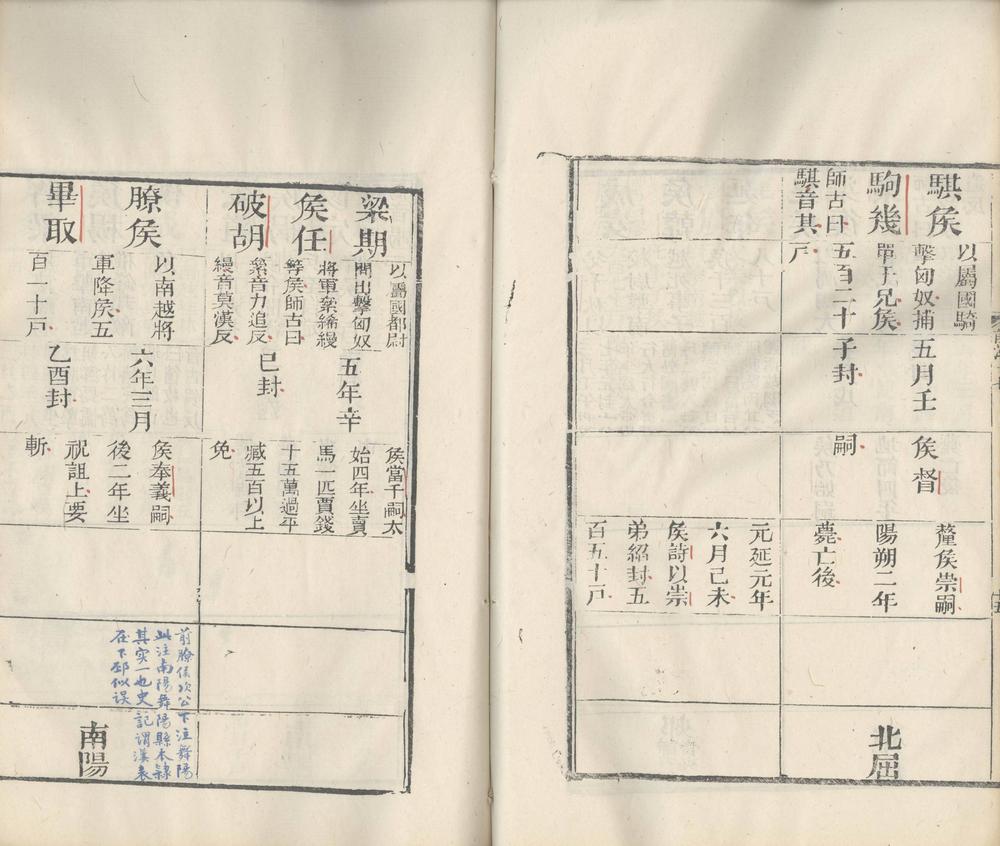 騏侯
駒幾
師古曰
騏音其
以屬國騎
擊匈奴捕
單于兄侯
五百二十
戶
五月壬
子封
侯督
嗣
釐侯崇嗣
陽朔二年
薨亡後
元延元年
六月己未
侯詩以崇
弟紹封五
百五十戶
北屈
梁期
侯任
破胡
以屬國都尉
間出擊匈奴
將軍絫絺縵
等侯師古曰
絫音力追反
縵音莫漢反
五年辛
巳封
侯當千嗣太
始四年坐賣
馬一匹賈錢
十五萬過平
臧五百以上
免
膫侯
畢取
以南越將
軍降侯五
百一十戶
六年三月
乙酉封
侯奉義嗣
後二年坐
祝詛上要
斬
前膫侯次公下注舞陽
此注南陽舞陽縣本隸
其实一也史記謂漢表
在下邳似误
南陽